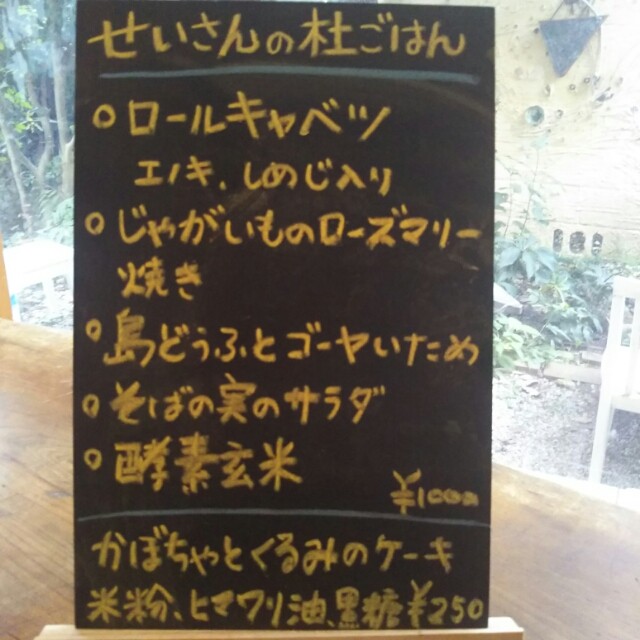 せいさんの杜ごはん
○ロールキャベツ
エノキ、しめじ入り
○じゃがいものローズマリー
焼き
○島どうふとゴーヤいため
○そばの実のサラダ
○酵素玄米
¥1000
かぼちゃとくるみのケーキ
米粉、ヒマワリ油、黒糖¥250